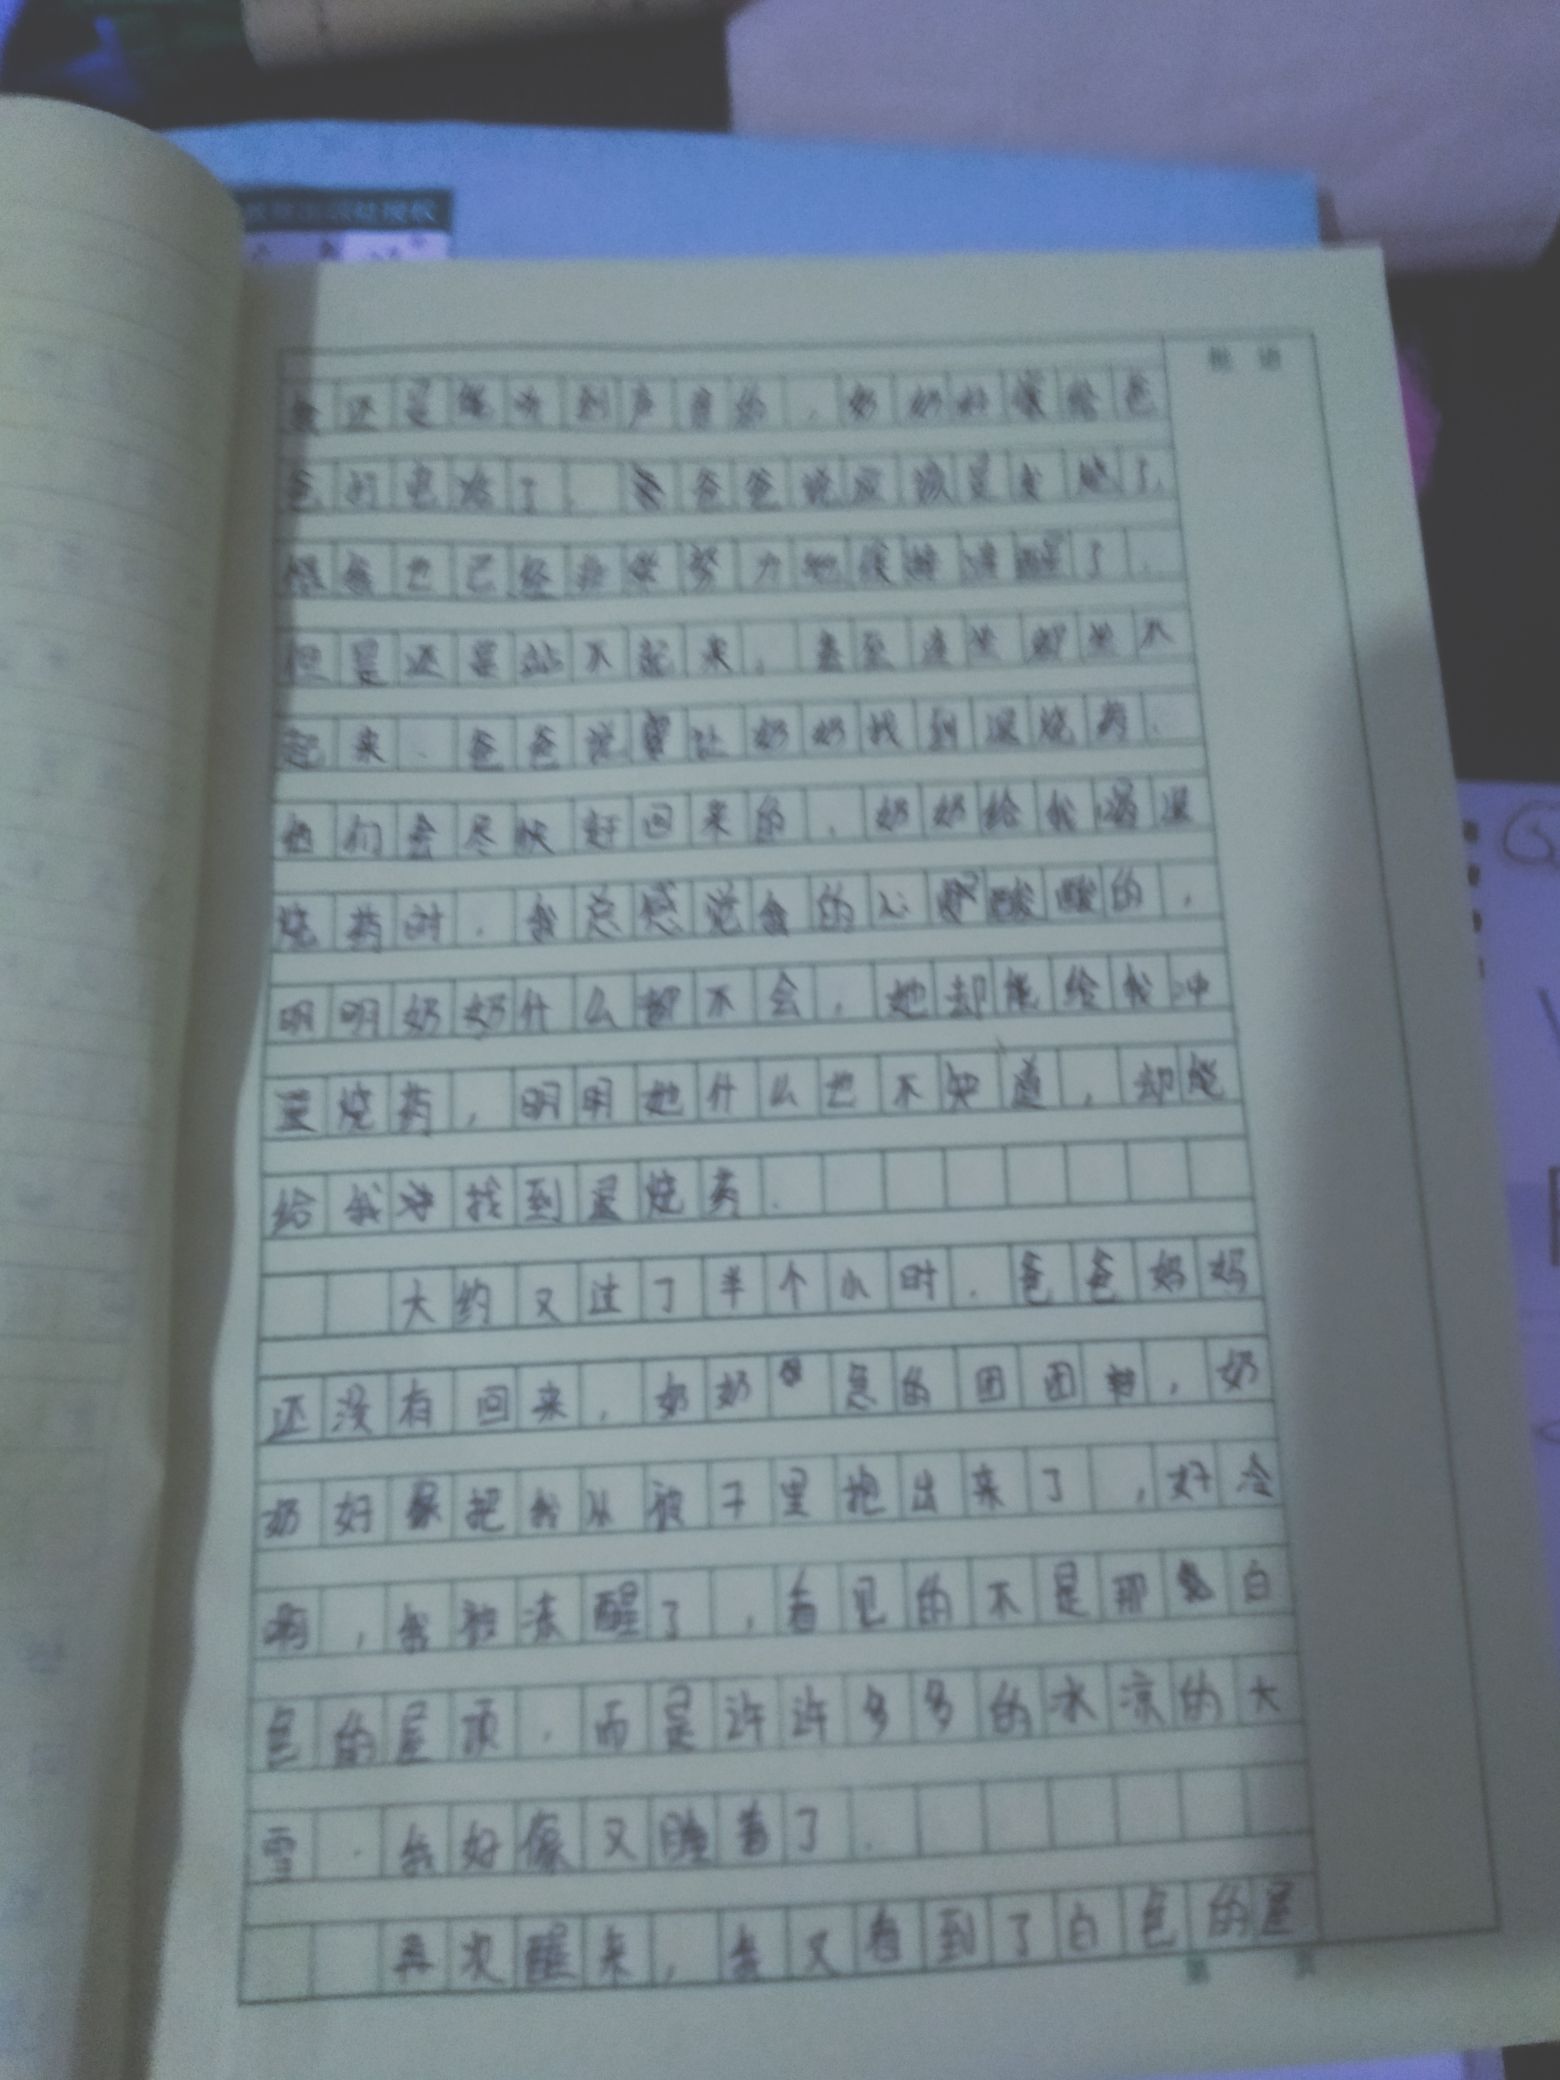 批 语
我还是能听到声音的，奶奶好像给爸
爸打电话了。爸爸说应该是发烧了，
但是还是站不起来，甚至连坐都坐不
起来。爸爸说要让奶奶找到退烧药，
他们会尽快赶回来的，奶奶给我喝退
烧药时，我总感觉我的心酸酸的，
明明奶奶什么都不会，她却能给我冲
退烧药，明明她什么也不知道，却能
给我找到退烧药。
大约又过了半个小时，爸爸妈妈
还没有回来，奶奶急的团团转，奶
奶好像把我从被子里抱出来了，好冷
啊，我被冻醒了，看见的不是那白
色的屋顶，而是许许多多的冰凉的大
雪。我好像又睡着了。
再次醒来，我又看到了白色的屋
第 页